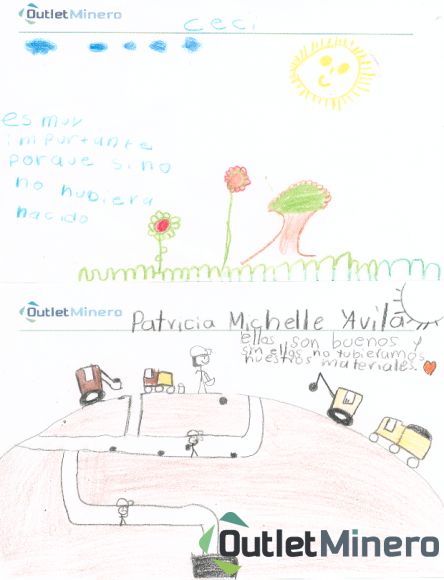 OutletMinero
ceci
es muy
importante
porque si no
no hubiera
nacido
OutletMinero
Patricia Michelle Avila
ellos son buenos y
sin ellos no tubieramos
nuestros materiales.
OutletMinero